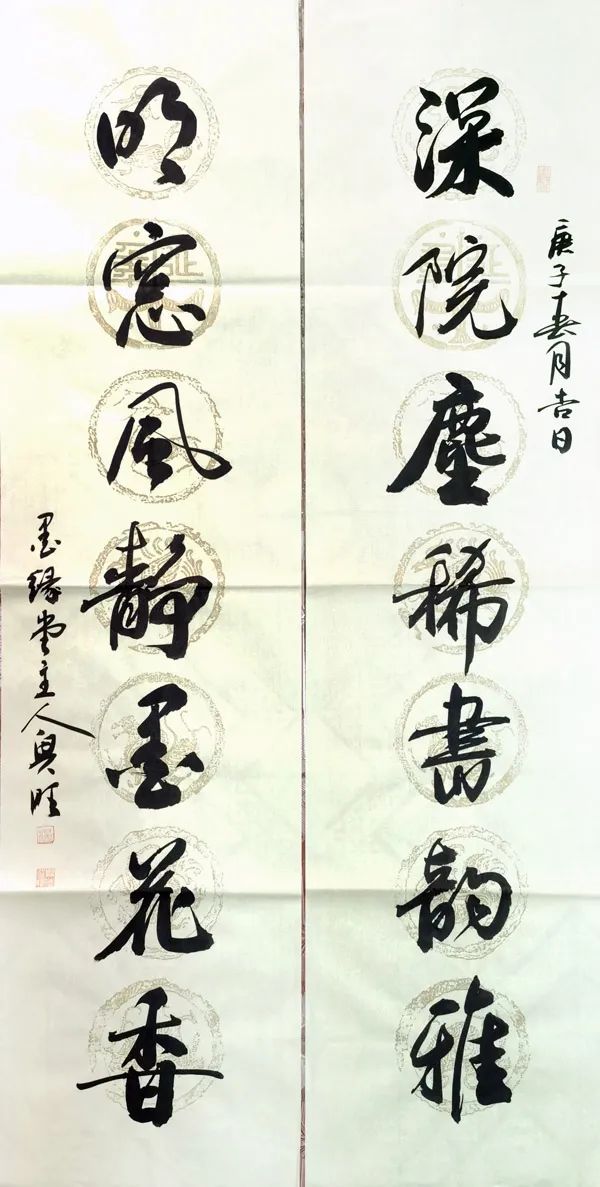 庚子春月吉日
深院塵稀書韵雅
明窓風靜墨花香
墨緣堂主人興旺